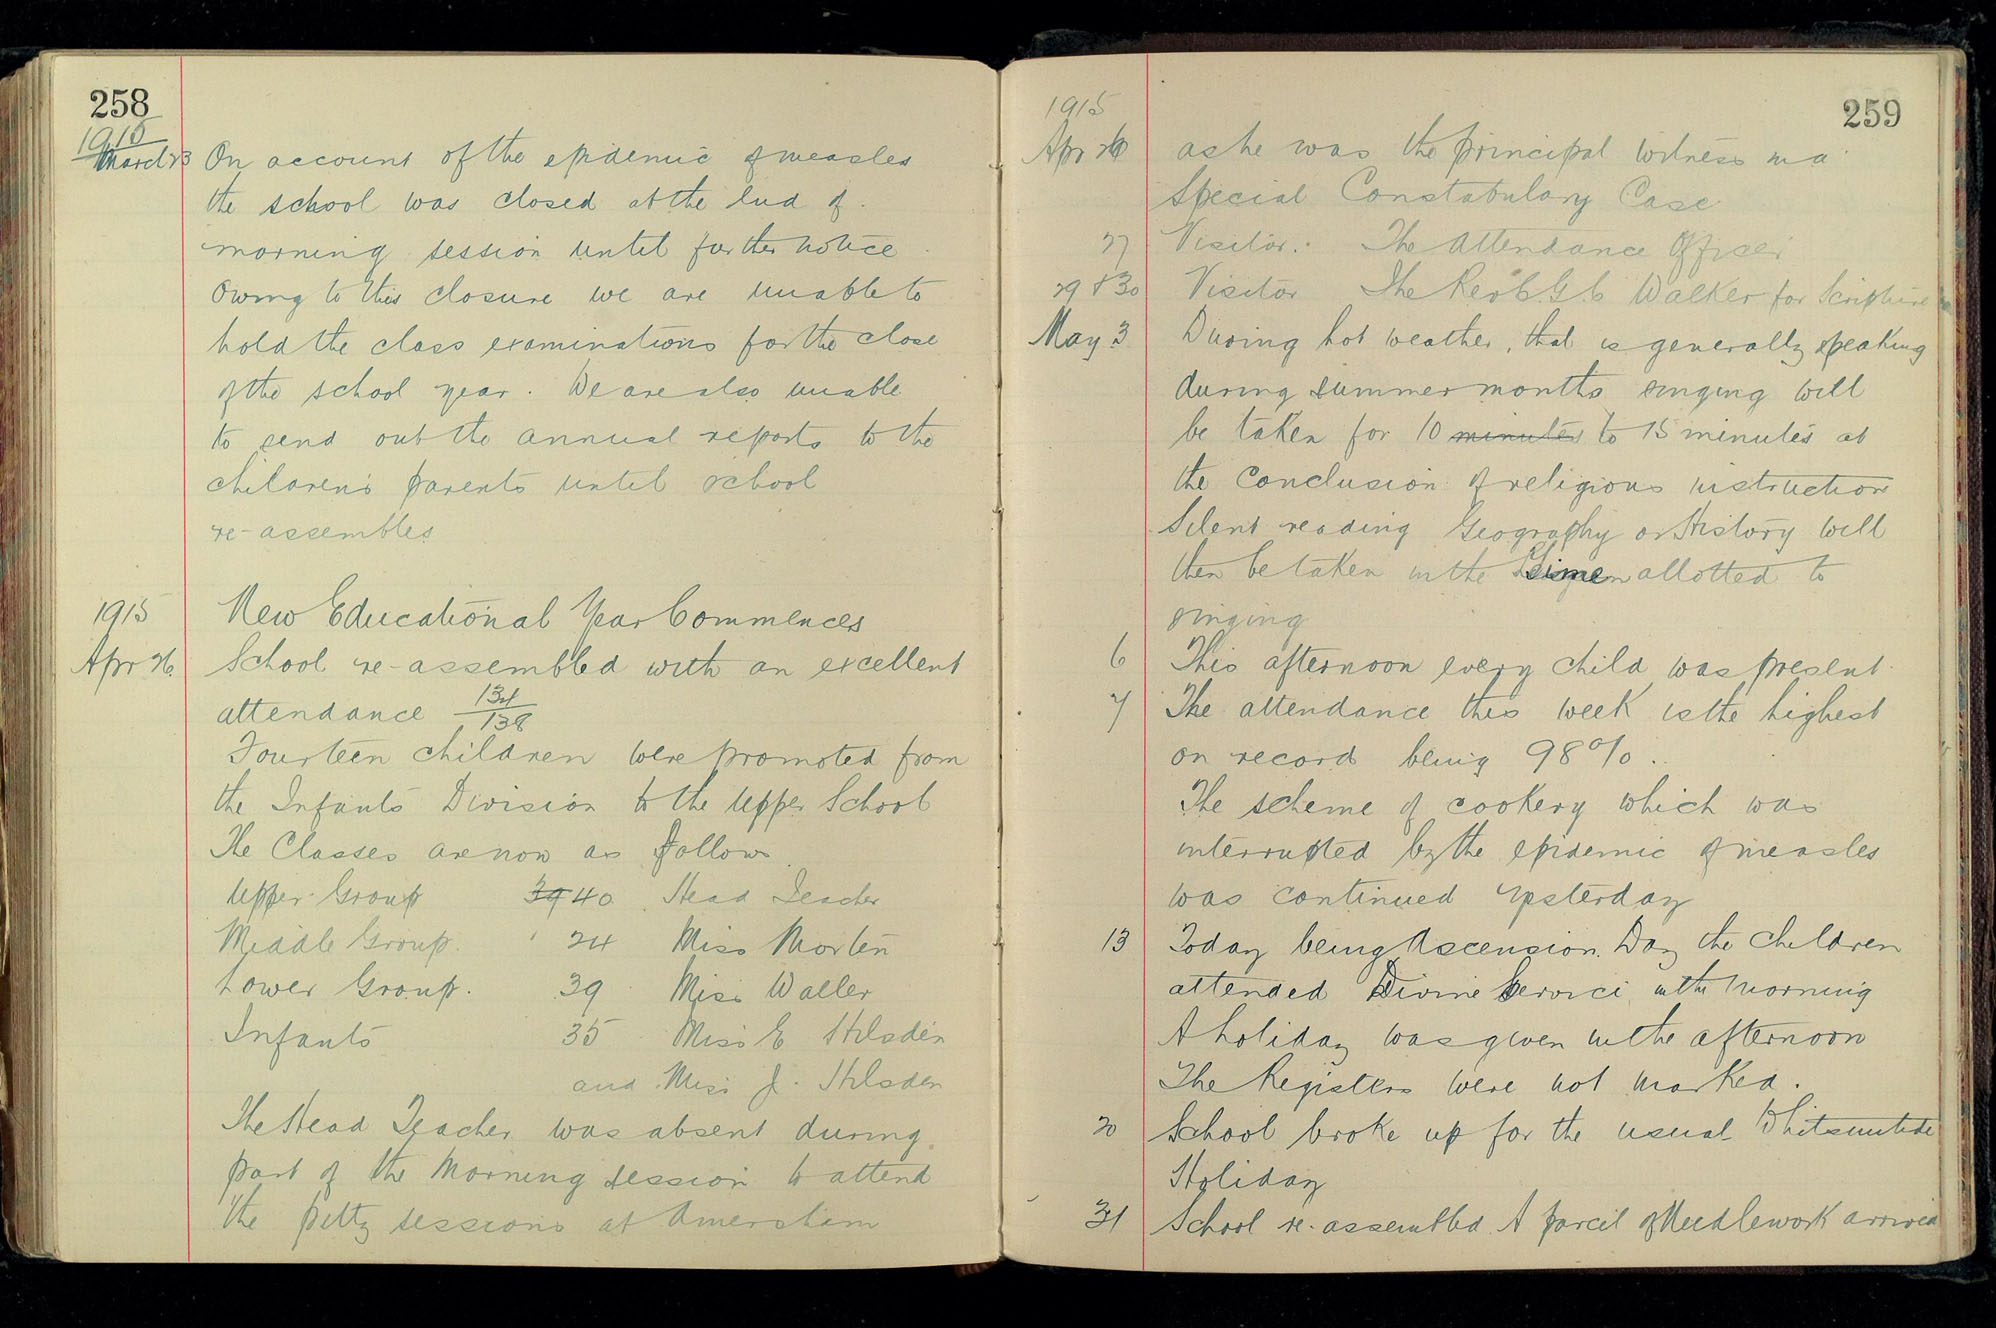 258
1915
March 23 On account of the epidemic of measles
the school was closed at the end of
morning session until further notice
Owing to this closure we are unable to
hold the class examinations for the close
of the school year. We are also unable
to send out the annual reports to the
children's parents until school
re-assembles
1915 New Educational Year Commences
Apr 26. School re-assembled with an excellent
attendance 134/138
Fourteen children were promoted from
the Infants Division to the Upper School
The Classes are now as follows.
Upper Group 39 40 Head Teacher
Middle Group. 24 Miss Morten
Lower Group. 39 Miss Waller
Infants 35 Miss E Hilsden
and Miss J. Hilsden
The Head Teacher was absent during
part of the Morning session to attend
the petty sessions at Amersham
259
1915
Apr 26 as he was the principal witness in a
Special Constabulary Case
27 Visitor: The Attendance Officer
29 & 30 Visitor The Rev G. Walker for Scripture
May 3 During hot weather, that is generally speaking
during summer months singing will
be taken for 10 minutes to 15 minutes at
the conclusion of religious instruction
Silent reading Geography or History will
then be taken in the time allotted to
singing
6 This afternoon every child was present.
7 The attendance this week is the highest
on record being 98%.
The scheme of cookery which was
interrupted by the epidemic of measles
was continued yesterday
13 Today being Ascension Day the children
attended Divine Service in the Morning
A holiday was given in the afternoon
The Registers were not marked.
20 School broke up for the usual Whitsuntide
Holiday
31 School re-assembled A parcel of Needlework arrived